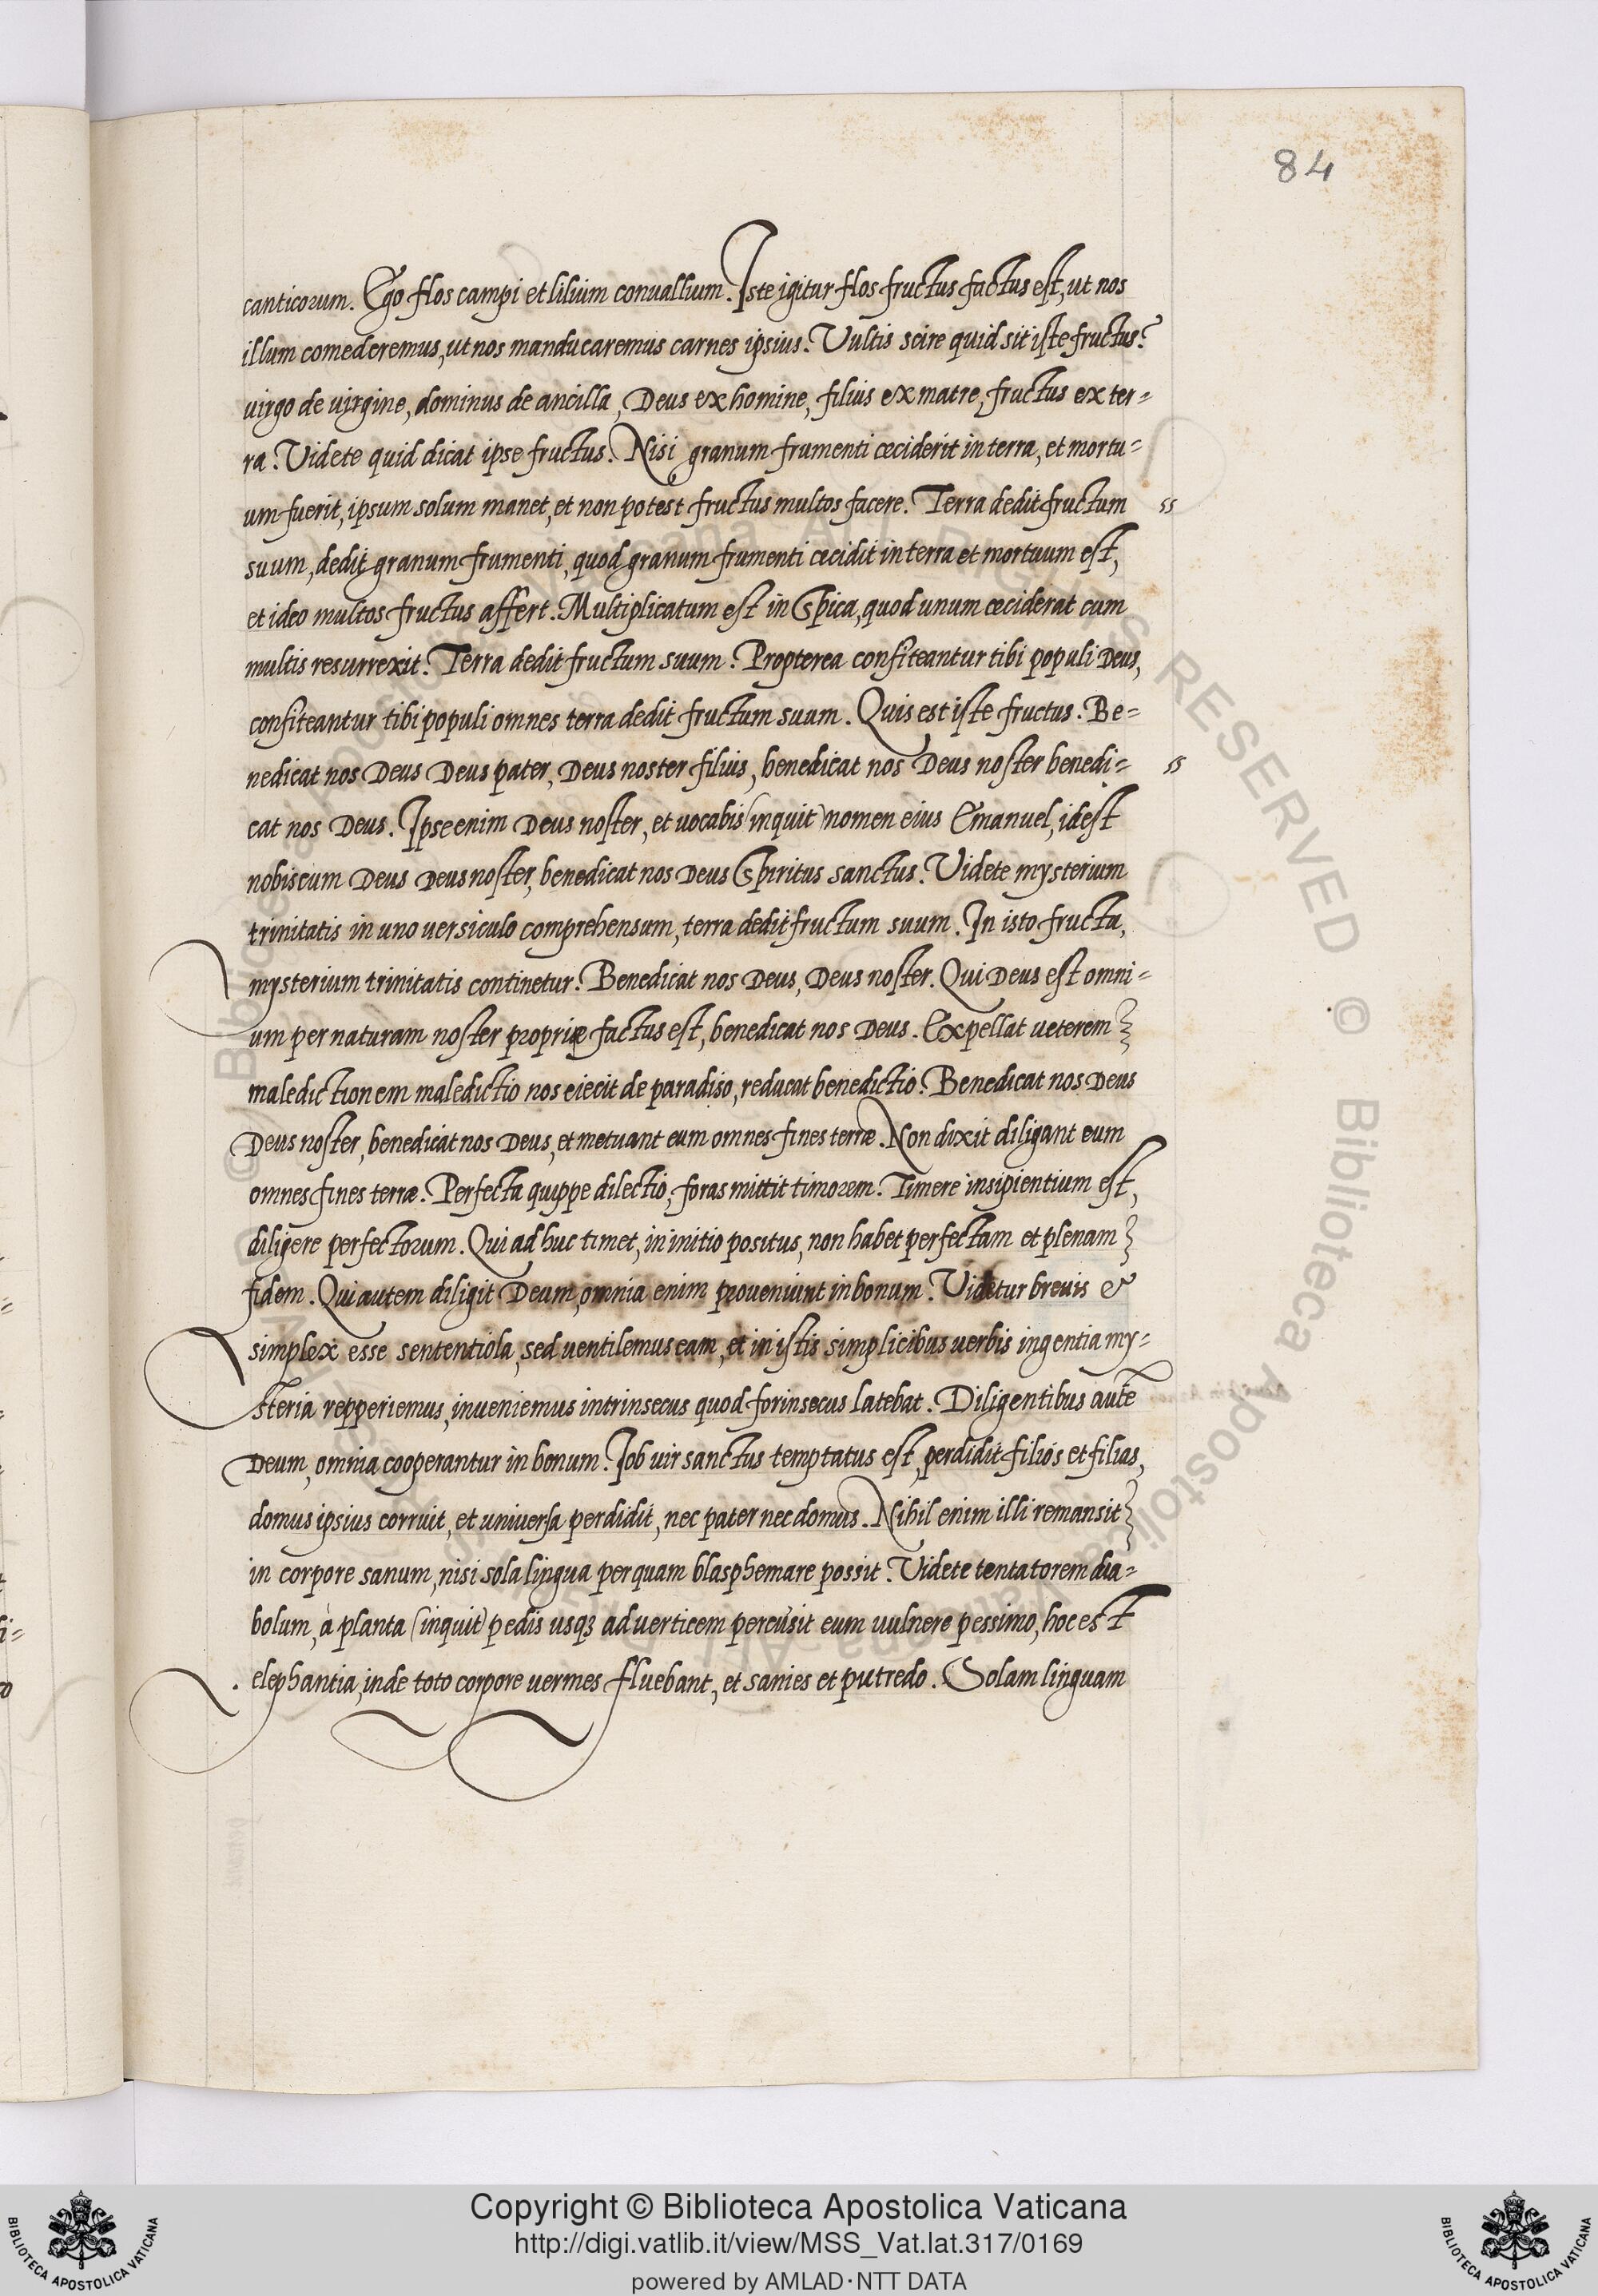 84
canticorum. Ego flos campi et lilium conuallium. Iste igitur flos fructus factus est, ut nos
illum comederemus, ut nos manducaremus carnes ipsius. Vultis scire quid sit iste fructus?
virgo de virgine, dominus de ancilla, Deus ex homine, filius ex matre, fructus ex ter=
ra. Videte quid dicat ipse fructus. Nisi granum frumenti ceciderit in terra, et mortu=
um fuerit, ipsum solum manet, et non potest fructus multos facere. Terra dedit fructum ss
suum, dedit granum frumenti, quod granum frumenti cecidit in terra et mortuum est,
et ideo multos fructus affert. Multiplicatum est in spica, quod unum ceciderat cum
multis resurrexit. Terra dedit fructum suum. Propterea confiteantur tibi populi Deus,
confiteantur tibi populi omnes terra dedit fructum suum. Quis est iste fructus. Be=
nedicat nos Deus Deus pater, Deus noster filius, benedicat nos Deus noster benedi= ss
cat nos Deus. Ipse enim Deus noster, et uocabis (inquit) nomen eius Emanuel, idest
nobiscum Deus Deus noster, benedicat nos Deus Spiritus sanctus. Videte mysterium
trinitatis in uno uersiculo comprehensum, terra dedit fructum suum. In isto fructu,
mysterium trinitatis continetur. Benedicat nos Deus, Deus noster. Qui Deus est omni=
um per naturam noster propriæ factus est, benedicat nos Deus. Expellat ueterem
maledictionem maledictio nos eiecit de paradiso, reducat benedictio. Benedicat nos Deus
Deus noster, benedicat nos Deus, et metuant eum omnes fines terræ. Non dixit diligant eum
omnes fines terræ. Perfecta quippe dilectio, foras mittit timorem. Timere insipientium est,
diligere perfectorum. Qui ad huc timet, in initio positus, non habet perfectam et plenam
fidem. Qui autem diligit Deum, omnia enim proueniunt in bonum. Videtur breuis &
simplex esse sententiola, sed uentilemus eam, et in istis simplicibus uerbis ingentia my=
steria repperiemus, inueniemus intrinsecus quod forinsecus latebat. Diligentibus autē
Deum, omnia cooperantur in bonum. Iob uir sanctus temptatus est, perdidit filios et filias,
domus ipsius corruit, et uniuersa perdidit, nec pater nec domus. Nihil enim illi remansit
in corpore sanum, nisi sola lingua per quam blasphemare possit. Videte tentatorem dia=
bolum, à planta (inquit) pedis usqꝫ ad uerticem percusit eum uulnere pessimo, hoc est
elephantia, inde toto corpore uermes fluebant, et sanies et putredo. Solam linguam
Copyright © Biblioteca Apostolica Vaticana
http://digi.vatlib.it/view/MSS_Vat.lat.317/0169
powered by AMLAD·NTT DATA
BIBLIOTECA APOSTOLICA VATICANA
BIBLIOTECA APOSTOLICA VATICANA